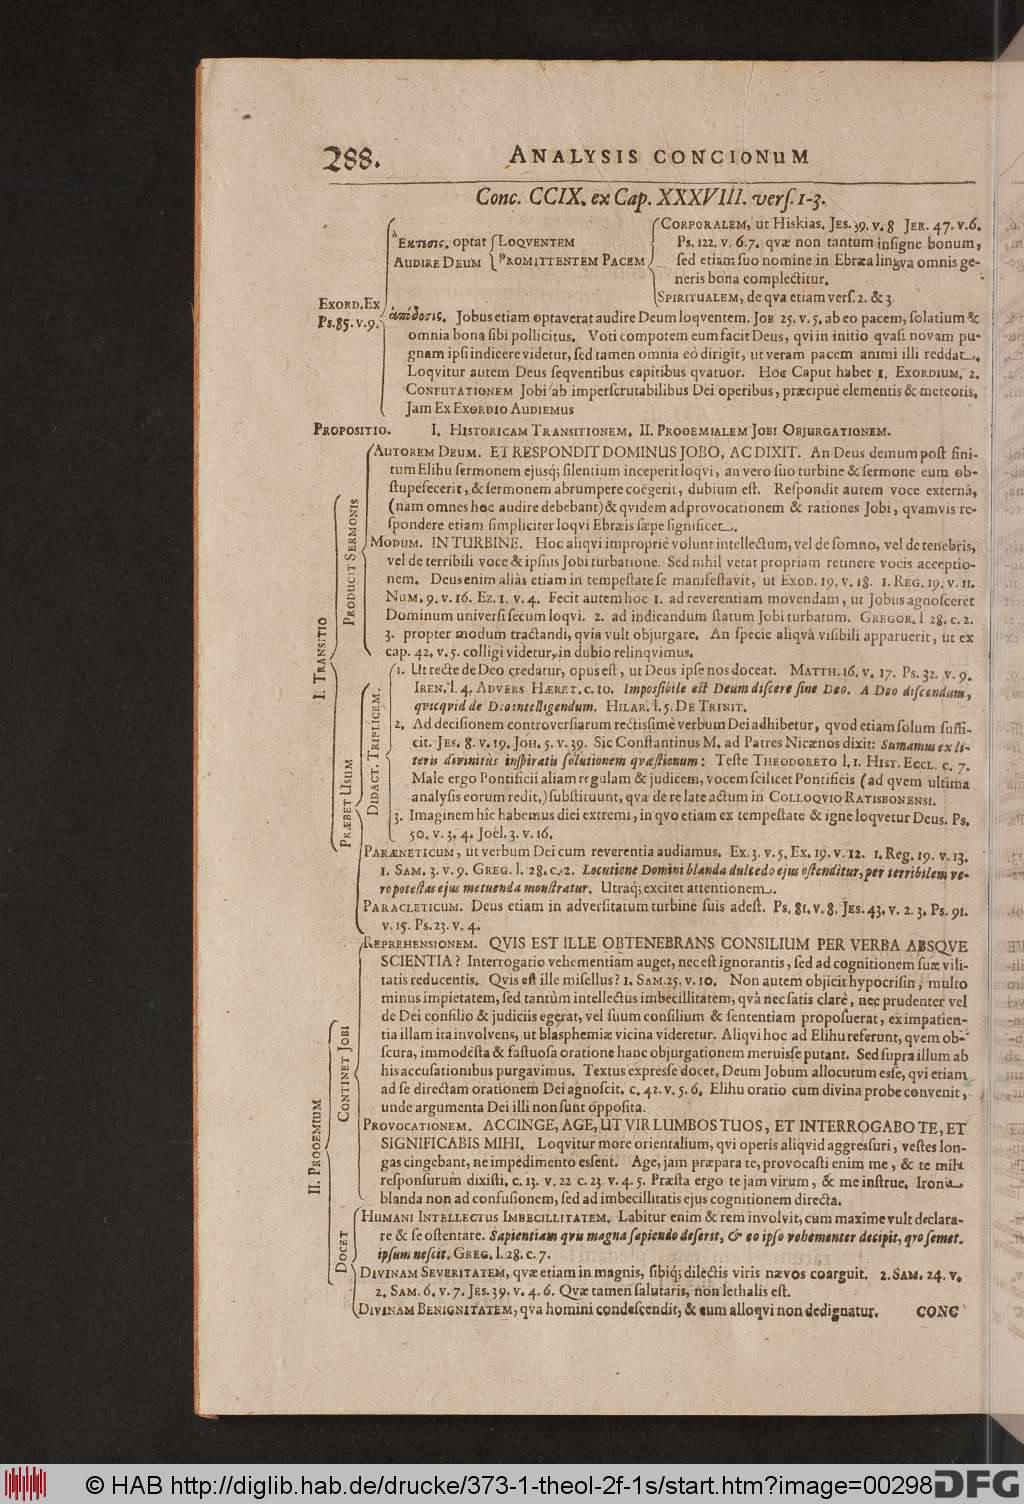 288. ANALYSIS CONCIONUM
Conc. CCIX. ex Cap. XXXVIII. vers. 1-3.
EXORD. EX
Ps. 85. v. 9.
Ἔκτισις. optat
AUDIRE DEUM
LOQVENTEM
PROMITTENTEM PACEM
CORPORALEM, ut Hiskias. JES. 39. v. 8 JER. 47. v. 6.
Ps. 122. v. 6. 7. qvæ non tantum insigne bonum,
sed etiam suo nomine in Ebræa lingva omnis ge-
neris bona complectitur.
SPIRITUALEM, de qva etiam vers. 2. & 3
ἀπόδοσις. Jobus etiam optaverat audire Deum loqventem. JOB 25. v. 5. ab eo pacem, solatium &
omnia bona sibi pollicitus. Voti compotem eum facit Deus, qvi in initio qvasi novam pu-
gnam ipsi indicere videtur, sed tamen omnia eò dirigit, ut veram pacem animi illi reddat.
Loqvitur autem Deus seqventibus capitibus qvatuor. Hoc Caput habet 1. EXORDIUM. 2.
CONFUTATIONEM Jobi ab imperscrutabilibus Dei operibus, præcipuè elementis & meteoris.
Jam EX EXORDIO AUDIEMUS
PROPOSITIO. I. HISTORICAM TRANSITIONEM. II. PROOEMIALEM JOBI OBJURGATIONEM.
I. TRANSITIO
PRODUCIT SERMONIS
AUTOREM DEUM. ET RESPONDIT DOMINUS JOBO, AC DIXIT. An Deus demum post fini-
tum Elihu sermonem ejusq; silentium inceperit loqvi, an vero suo turbine & sermone eum ob-
stupefecerit, & sermonem abrumpere coëgerit, dubium est. Respondit autem voce externâ,
(nam omnes hoc audire debebant) & qvidem ad provocationem & rationes Jobi, qvamvis re-
spondere etiam simpliciter loqvi Ebræis sæpe significet.
MODUM. IN TURBINE. Hoc aliqvi impropriè volunt intellectum, vel de somno, vel de tenebris,
vel de terribili voce & ipsius Jobi turbatione. Sed nihil vetat propriam retinere vocis acceptio-
nem. Deus enim aliàs etiam in tempestate se manifestavit, ut EXOD. 19. v. 18. 1. REG. 19. v. 11.
NUM. 9. v. 16. Ez. 1. v. 4. Fecit autem hoc 1. ad reverentiam movendam, ut Jobus agnosceret
Dominum universi secum loqvi. 2. ad indicandum statum Jobi turbatum. GREGOR. l 28. c. 2.
3. propter modum tractandi, qvia vult objurgare. An specie aliqvâ visibili apparuerit, ut ex
cap. 42. v. 5. colligi videtur, in dubio relinqvimus.
PRÆBET USUM
DIDACT. TRIPLICEM.
1. Ut recte de Deo credatur, opus est, ut Deus ipse nos doceat. MATTH. 16. v. 17. Ps. 32. v. 9.
IREN. l. 4. ADVERS HÆRET. c. 10. Impossibile est Deum discere sine Deo. A Deo discendum,
qvicqvid de Deo intelligendum. HILAR. l. 5. DE TRINIT.
2. Ad decisionem controversiarum rectissimè verbum Dei adhibetur, qvod etiam solum suffi-
cit. JES. 8. v. 19. JOH. 5. v. 39. Sic Constantinus M. ad Patres Nicænos dixit: Sumamus ex li-
teris divinitus inspiratis solutionem qvæstionum: Teste THEODORETO l. 1. HIST. ECCL. c. 7.
Male ergo Pontificii aliam regulam & judicem, vocem scilicet Pontificis (ad qvem ultima
analysis eorum redit,) substituunt, qva de re late actum in COLLOQVIO RATISBONENSI.
3. Imaginem hîc habemus diei extremi, in qvo etiam ex tempestate & igne loqvetur Deus. Ps.
50. v. 3. 4. Joël. 3. v. 16.
PARÆNETICUM, ut verbum Dei cum reverentia audiamus. Ex. 3. v. 5. Ex. 19. v. 12. 1. Reg. 19. v. 13.
1. SAM. 3. v. 9. GREG. l. 28. c. 2. Locutione Domini blanda dulcedo ejus ostenditur, per terribilem ve-
ro potestas ejus metuenda monstratur. Utraq; excitet attentionem.
PARACLETICUM. Deus etiam in adversitatum turbine suis adest. Ps. 81. v. 8. JES. 43. v. 2. 3. Ps. 91.
v. 15. Ps. 23. v. 4.
II. PROOEMIUM
CONTINET JOBI
REPREHENSIONEM. QVIS EST ILLE OBTENEBRANS CONSILIUM PER VERBA ABSQVE
SCIENTIA? Interrogatio vehementiam auget, nec est ignorantis, sed ad cognitionem suæ vili-
tatis reducentis. Qvis est ille misellus? 1. SAM. 25. v. 10. Non autem objicit hypocrisin, multo
minus impietatem, sed tantùm intellectus imbecillitatem, qvâ nec satis clarè, nec prudenter vel
de Dei consilio & judiciis egerat, vel suum consilium & sententiam proposuerat, ex impatien-
tia illam ita involvens, ut blasphemiæ vicina videretur. Aliqvi hoc ad Elihu referunt, qvem ob-
scura, immodesta & fastuosa oratione hanc objurgationem meruisse putant. Sed supra illum ab
his accusationibus purgavimus. Textus expresse docet, Deum Jobum allocutum esse, qvi etiam
ad se directam orationem Dei agnoscit. c. 42. v. 5. 6. Elihu oratio cum divina probe convenit,
unde argumenta Dei illi non sunt opposita.
PROVOCATIONEM. ACCINGE, AGE, UT VIR LUMBOS TUOS, ET INTERROGABO TE, ET
SIGNIFICABIS MIHI. Loqvitur more orientalium, qvi operis aliqvid aggressuri, vestes lon-
gas cingebant, ne impedimento essent. Age, jam præpara te, provocasti enim me, & te mihi
responsurum dixisti. c. 13. v. 22 c. 23. v. 4. 5. Præsta ergo te jam virum, & me instrue. Ironia
blanda non ad confusionem, sed ad imbecillitatis ejus cognitionem directa.
DOCET
HUMANI INTELLECTUS IMBECILLITATEM. Labitur enim & rem involvit, cùm maxime vult declara-
re & se ostentare. Sapientiam qvis magna sapiendo deserit, & eo ipso vehementer decipit, qvo semet-
ipsum nescit. GREG. l. 28. c. 7.
DIVINAM SEVERITATEM, qvæ etiam in magnis, sibiq; dilectis viris nævos coarguit. 2. SAM. 24. v.
2. SAM. 6. v. 7. JES. 39. v. 4. 6. Qvæ tamen salutaris, non lethalis est.
DIVINAM BENIGNITATEM, qva homini condescendit, & eum alloqvi non dedignatur. CONC
© HAB http://diglib.hab.de/drucke/373-1-theol-2f-1s/start.htm?image=00298 DFG